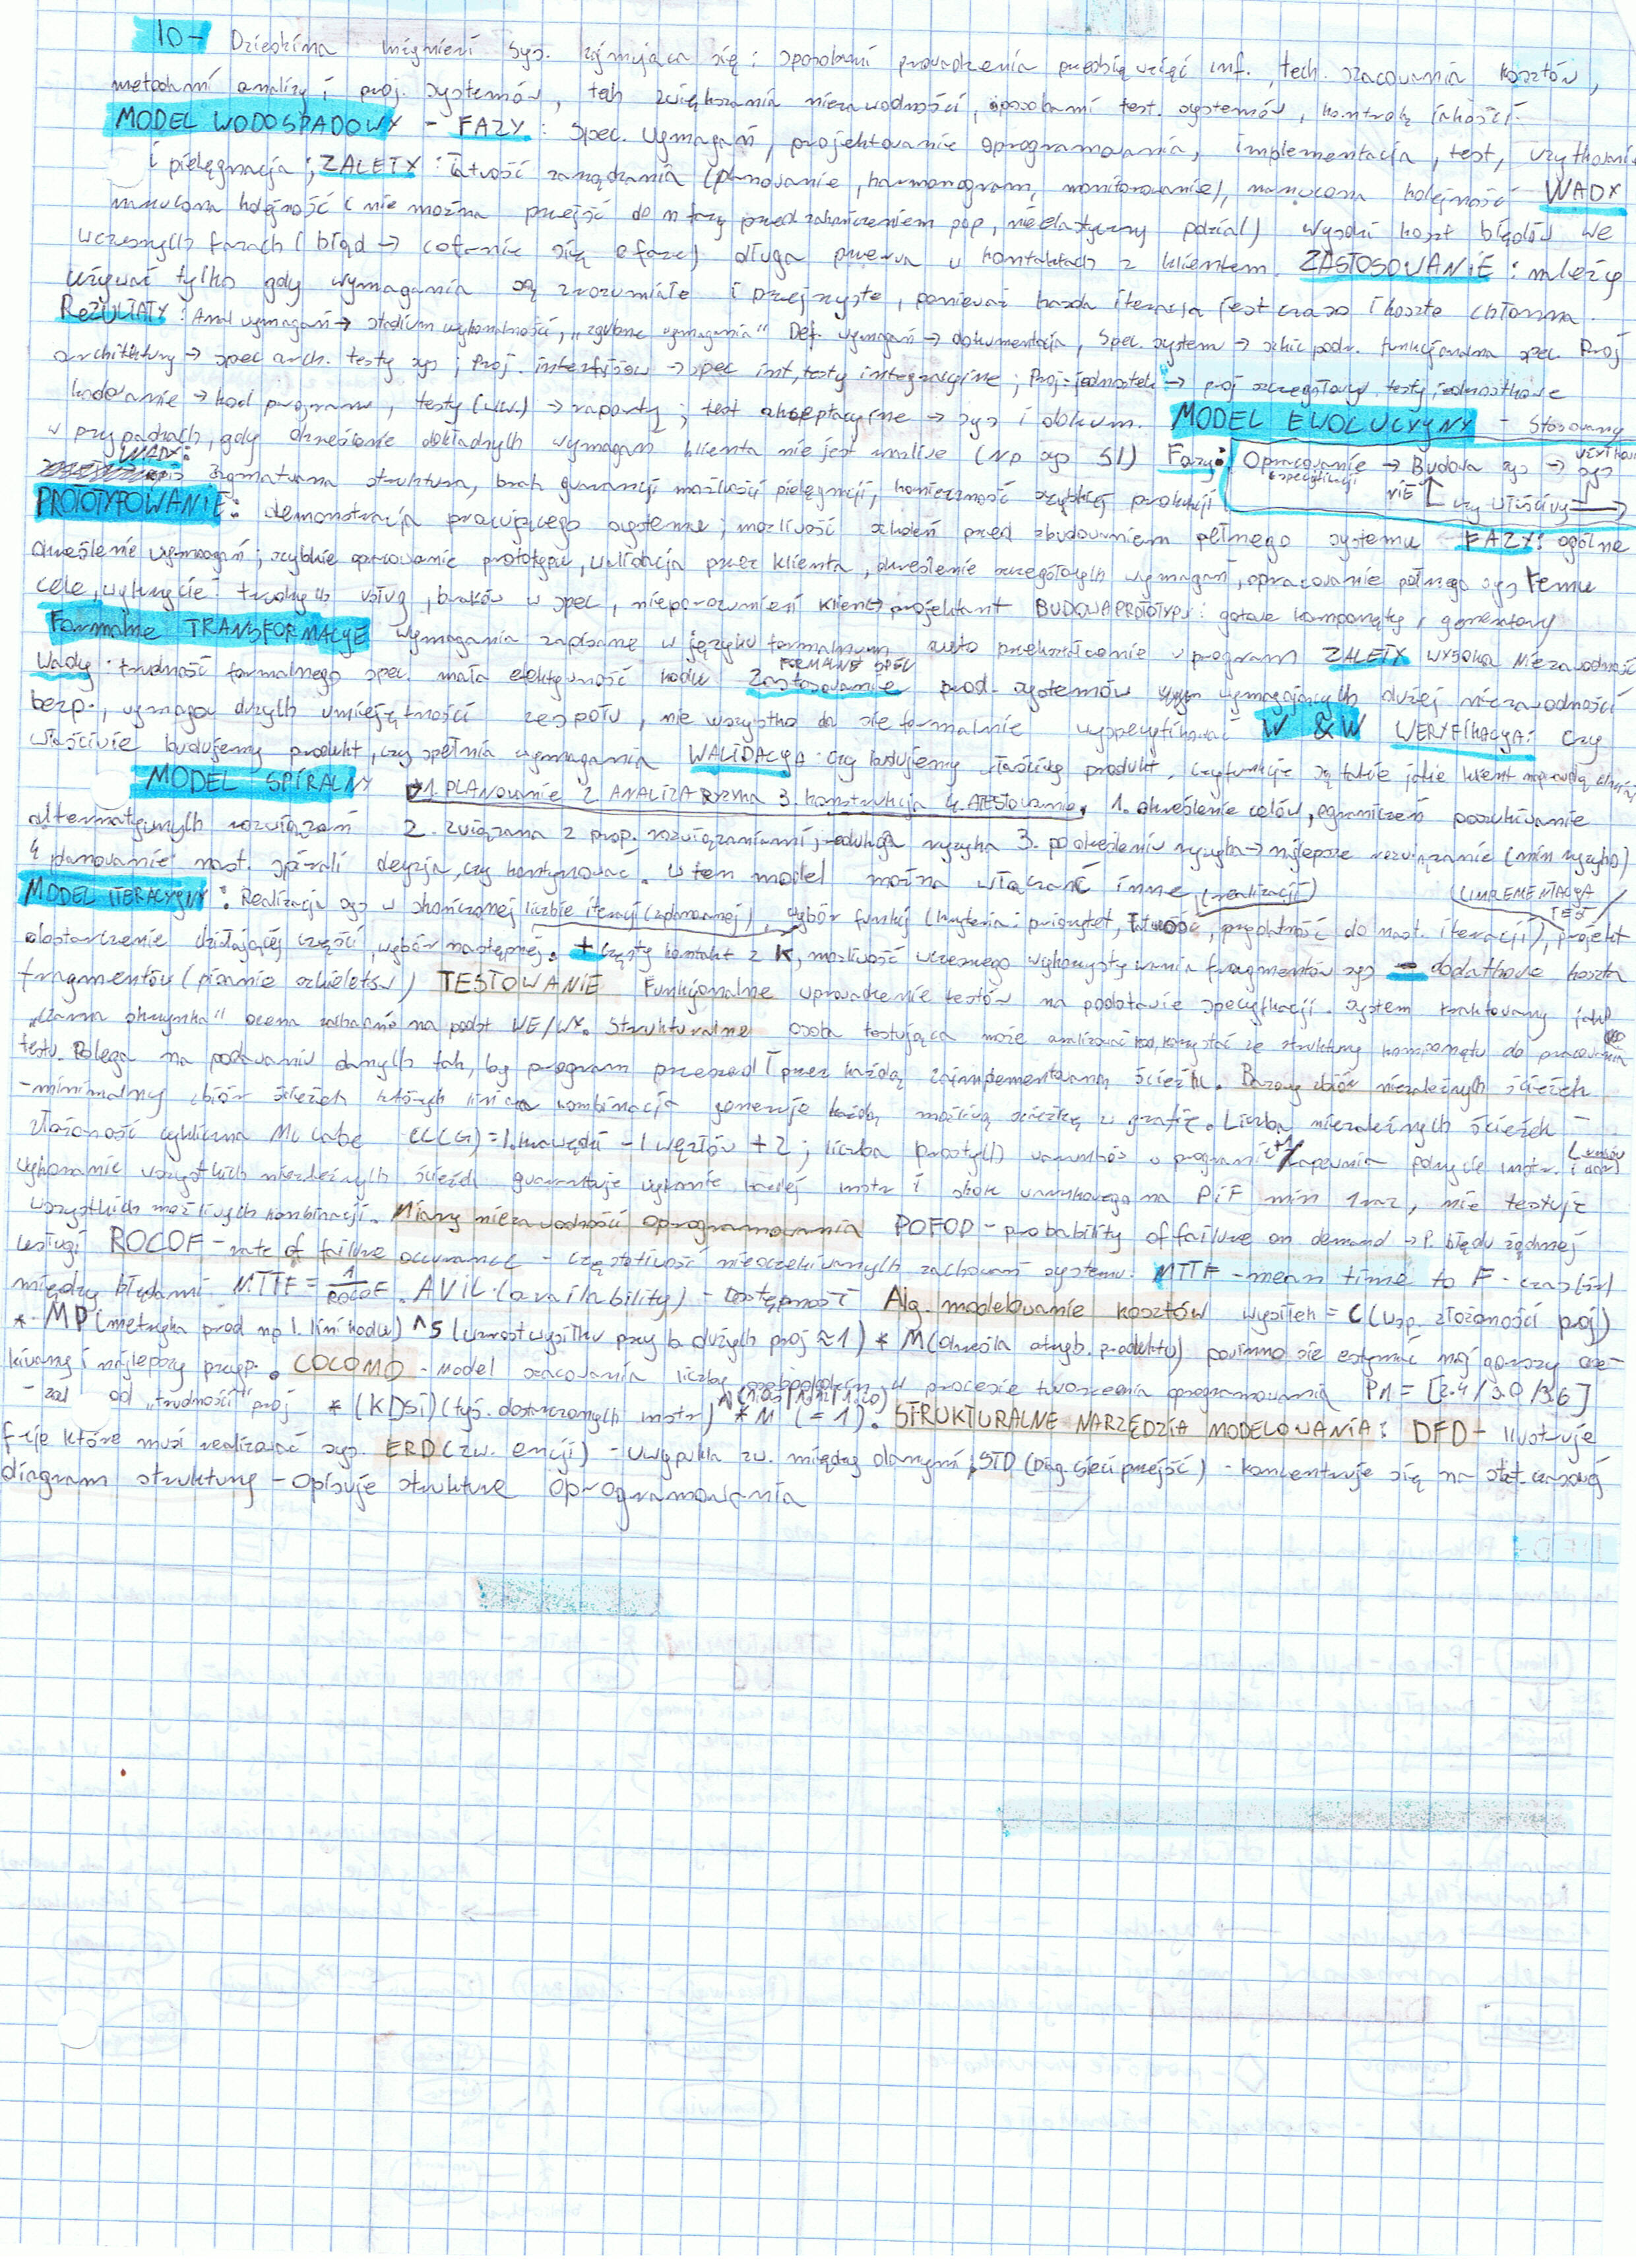 IO - Dziedzina inżynierii sys. zajmująca się: sposobami prowadzenia przedsięwzięć inf., tech. szacowania kosztów,
metodami analizy i proj. systemów, tech zwiększania niezawodności, sposobami test. systemów, kontrolą jakości.
MODEL WODOSPADOWY - FAZY: spec. wymagań, projektowanie oprogramowania, implementacja, test, użytkowanie
i pielęgnacja; ZALETY: łatwość zarządzania (planowanie, harmonogram, monitorowanie), narzucona kolejność WADY
narzucona kolejność (nie można przejść do n fazy przed zakończeniem pop, nieelastyczny podział) wysoki koszt błędów we
wczesnych fazach (błąd → cofanie się o fazę) długa przerwa w kontaktach z klientem. ZASTOSOWANIE: należy
używać tylko gdy wymagania są zrozumiałe i przejrzyste, ponieważ każda iteracja jest czaso i koszto chłonna.
REZULTATY: Anal wymagań → studium wykonalności, „zgrubne wymagania" Def. wymagań → dokumentacja, Spec. system → funkcjonalna spec Proj
architektury → spec arch. testy sys; Proj. interfejsów → spec int, testy integracyjne; Proj. jednostek → proj szczegółowy, testy jednostkowe
kodowanie → kod programu, testy (ww.) → raporty; test akceptacyjne → sys i dokum. MODEL EWOLUCYJNY - Stosowany
w przypadkach, gdy określenie dokładnych wymagań klienta nie jest możliwe (np sys SI) Fazy: Opracowanie specyfikacji → Budowa sys → sys
NIE czy właściwy →
WADY: zagmatwana struktura, brak gwarancji możliwości pielęgnacji, konieczność szybkiej produkcji
PROTOTYPOWANIE: demonstracja pracującego systemu; możliwość szkoleń przed zbudowaniem pełnego systemu FAZY: ogólne
określenie wymagań; szybkie opracowanie prototypu, walidacja przez klienta, określenie szczegółowych wymagań, opracowanie pełnego systemu
cele, wykrycie: trudnych usług, braków w spec, nieporozumień klient projektant BUDOWA PROTOTYPU: gotowe komponenty, generatory
Formalne TRANSFORMACJE wymagania zapisane w języku formalnym auto przekształcanie w program ZALETY wysoka niezawodność
Wady: trudność formalnego spec. mała efektywność kodu Zastosowanie FORMALNE SPEC prod. systemów wymagających dużej niezawodności
bezp., wymaga dużych umiejętności zespołu, nie wszystko da się formalnie wyspecyfikować W & W WERYFIKACJA: Czy
właściwie budujemy produkt, czy spełnia wymagania WALIDACJA: czy budujemy właściwy produkt, czy funkcje są takie jakie klient naprawdę
MODEL SPIRALNY 1. PLANowanie 2 ANALIZA RYZYKA 3. konstrukcja 4. ATESTowanie, 1. określenie celów, ograniczeń poszukiwanie
alternatywnych rozwiązań 2. związana z prop. rozwiązaniami, redukcja ryzyka 3. po określeniu ryzyka → najlepsze rozwiązanie (min ryzyko)
4 planowanie nast. spirali decyzja, czy kontynuować. W ten model można włączać inne (realizacji) (IMPLEMENTACJA
TEST
MODEL ITERACYJNY: Realizacja sys w skończonej liczbie iteracji (zaplanowanej), wybór funkcji (kryteria: priorytet, łatwość, przydatność do nast. iteracji), projekt
dostarczenie działającej części, wybór następnej. + częsty kontakt z K, możliwość wczesnego wykorzystywania fragmentów sys - dodatkowe koszta
fragmentów (pisanie szkieletów) TESTOWANIE Funkcjonalne wprowadzenie testów na podstawie specyfikacji. system traktowany jako
„czarna skrzynka" ocena zachowań na podst WE/WY. Strukturalne osoba testująca może analizować kod, korzystać ze struktury komponentu do
testu. Polega na podawaniu danych tak, by program przeszedł przez każdą zaimplementowaną ścieżkę. Bazowy zbiór niezależnych ścieżek
-minimalny zbiór ścieżek których liniowa kombinacja generuje każdą możliwą ścieżkę w grafie. Liczba niezależnych ścieżek -
złożoność cykliczna McCabe CC(G) = l. krawędzi - l węzłów + 2; liczba prostych warunków w program +1 zapewnia pokrycie instr.
wykonanie wszystkich niezależnych ścieżek gwarantuje wykonanie każdej instr i skok warunkowego na P i F min 1 raz, nie testuje
wszystkich możliwych kombinacji. Miary niezawodności oprogramowania POFOD - probability of failure on demand → P. błędu żądanej
usługi ROCOF - rate of failure occurance - częstotliwość nieoczekiwanych zachowań systemu. MTTF - mean time to F - czas (śr)
między błędami MTTF = 1/ROCOF. AVIL (availability) - Dostępność Alg. modelowanie kosztów wysiłek = C (wsp. złożoności proj)
* MP (metryka prod np l. linii kodu) ^S (wzrost wysiłku przy b dużych proj ≈ 1) * M (określa atryb. produktu) powinno się estymować najgorszy ocze-
kiwany i najlepszy przyp. COCOMO - model szacowania liczby osobomiesięcy w procesie tworzenia oprogramowania PM = [2.4/3.0/3.6]
- zal od „trudności" proj * (KDSI) (tyś. dostarczonych instr) ^(1.05/1.12/1.20) * M (=1). STRUKTURALNE NARZĘDZIA MODELOWANIA: DFD - ilustruje
f-cje które musi realizować sys. ERD (zw. encji) - uwypukla zw. między danymi, STD (Diag. sieci przejść) - koncentruje się na
diagram struktury - Opisuje strukturę oprogramowania